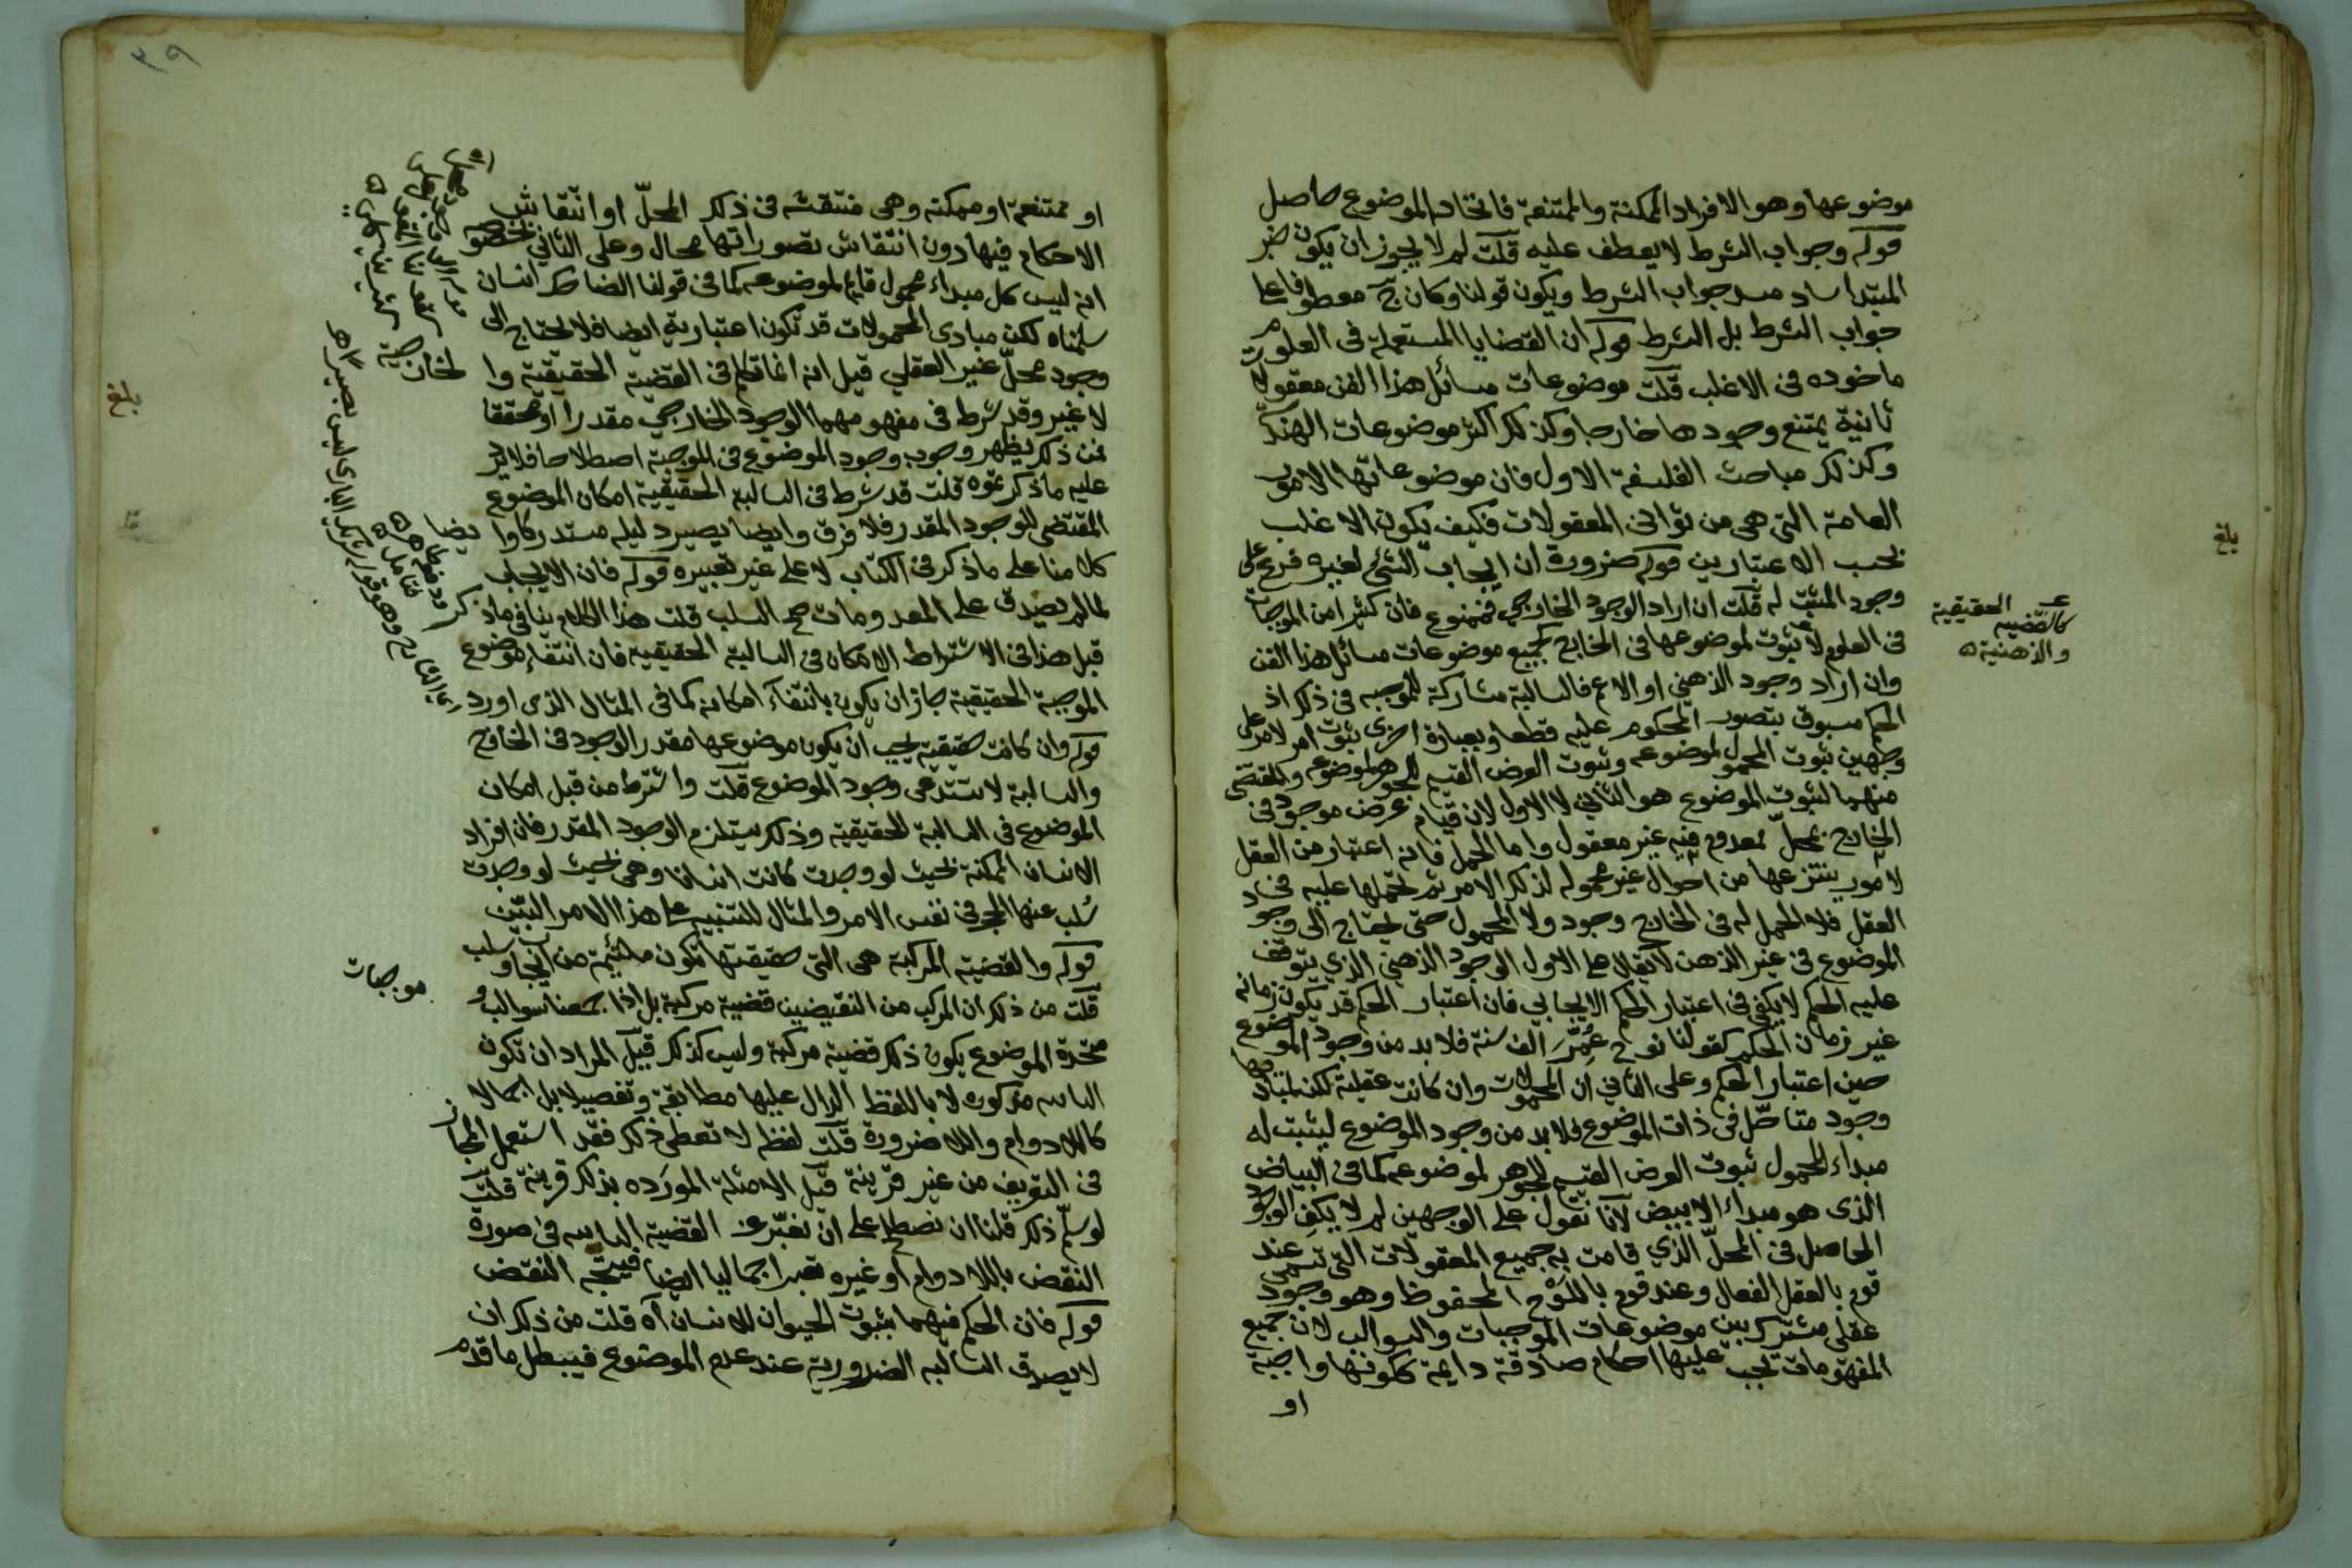 موضوعها وهو الافراد الممكنة والممتنعة فاتحاد الموضوع حاصل
قوله وجواب الشرط لا يعطف عليه قلت لم لا يجوز ان يكون خبر
المبتدا ساد مسد جواب الشرط ويكون قولنا وكان ح معطوفا على
جواب الشرط بل الشرط قوله ان القضايا المستعملة فى العلوم
ماخوذه فى الاغلب قلت موضوعات مسائل هذا الفن معقولات
ثانية يمتنع وجودها خارجا وكذلك اكثر موضوعات الهندسة
وكذلك مباحث الفلسفة الاول فان موضوعاتها الامور
العامة التى هى من ثوانى المعقولات فكيف يكون الاغلب
بحسب الاعتبارين قوله ضرورة ان ايجاب الشئ لغيره فرع على
وجود المثبت له قلت ان اراد الوجود الخارجي فممنوع فان كثيرا من الموجبات
فى العلوم لا ثبوت لموضوعها فى الخارج كجميع موضوعات مسائل هذا الفن
وان اراد وجود الذهني او الاعم فالسالبة مشاركة للموجبه فى ذلك اذ
الحكم مسبوق بتصور المحكوم عليه قطعا وبعبارة اخرى ثبوت امر لامر على
وجهين ثبوت المحمول لموضوعه وثبوت العرض القسيم للجوهر لموضوعه والمقتضى
منهما لثبوت الموضوع هو الثاني لا الاول لان قيام عرض موجود فى
الخارج بمحلّ معدوم فيه غير معقول واما الحمل فانه اعتبار من العقل
لامور ينتزعها من احوال غير محموله لذلك الامر ثم تحملها عليه فى
العقل فلا الحمل له فى الخارج وجود ولا المحمول حتى يحتاج الى وجود
الموضوع فى غير الذهن لا يقال على الاول الوجود الذهني الذي يتوقف
عليه الحكم لا يكفى فى اعتبار الحكم الايجابي فان اعتبار الحكم قد يكون زمانه
غير زمان الحكم كقولنا نوح عُمِّرَ الف سنة فلا بد من وجود الموضوع
حين اعتبار الحكم وعلى الثاني ان المحمولات وان كانت عقلية لكن لمباديها
وجود متاصّل فى ذات الموضوع فلا بد من وجود الموضوع ليثبت له
مبداء المحمول ثبوت العرض القسيم للجوهر لموضوعه كما فى البياض
الذى هو مبداء الابيض لانا نقول على الوجهين لم لا يكفى الوجود
الحاصل فى المحلّ الذي قامت به جميع المعقولات التى تسمى عند
قوم بالعقل الفعال وعند قوم باللَوْح المحفوظ وهو وجود
عقلى مشترك بين موضوعات الموجبات والسوالب لان جميع
المفهومات تجب عليها احكام صادقة دايمة ككونها واجبة
او
الحقيقية
كالقضيه
والذهنية
بلغ
او ممتنعة او ممكنه وهى منتقشه فى ذلك المحلّ او انتقاش
الاحكام فيها دون انتقاش تصوراتها محال وعلى الثاني بخصوصه
انه ليس كل مبداء محمول قايم لموضوعه كما فى قولنا الضاحك انسان
سلمناه لكن مبادى المحمولات قد تكون اعتبارية ايضا فلا تحتاج الى
وجود محلّ غير العقلي قيل انه انما تكلم فى القضية الحقيقية والخارجية
لا غير وقد شرط فى مفهومهما الوجود الخارجي مقدرا او محققا
فمن ذلك يظهر وجوب وجود الموضوع فى الموجبة اصطلاحا فلا يرد
عليه ما ذكرتموه قلت قد شرط فى السالبة الحقيقية امكان الموضوع
المقتضى للوجود المقدر فلا فرق وايضا يصير دليله مستدركا وايضا
كلامنا على ما ذكر فى الكتاب لا على غير تعبيره قوله فان الايجاب
لما لم يصدق على المعدومات صح السلب قلت هذا الكلام ينافى ما ذكر
قبل هذا فى الاشتراط الامكان فى السالبة الحقيقية فان انتفاء موضوع
الموجبة الحقيقية جاز ان يكون بانتفاء امكانه كما فى المثال الذى اورد
قوله وان كانت حقيقية يجب ان يكون موضوعها مقدر الوجود فى الخارج
والسالبة لا تستدعى وجود الموضوع قلت واشترط من قبل امكان
الموضوع فى السالبة الحقيقية وذلك يستلزم الوجود المقدر فان افراد
الانسان الممكنة بحيث لو وجدت كانت انسانا وهى بحيث لو وجدت
سُلب عنها الحجر فى نفس الامر والمثال للتنبيه على هذا الامر البيّن
قوله والقضية المركبة هى التى حقيقتها تكون ملتئمة من ايجاب وسلب
قلت من ذلك ان المركب من النقيضين قضية مركبة بل اذا جمعنا سوالب او موجبات
متحدة الموضوع يكون ذلك قضية مركبة وليس كذلك قيل المراد ان تكون
مذكوره لا باللفظ الدال عليها مطابقة وتفصيلا بل اجمالا
كاللادوام واللاضرورة قلت لفظ لا تعطى ذلك فقد استعمل المجاز
فى التعريف من غير قرينة قيل الامثلة المورَده بذلك قرينة قلت
لو سلّم ذلك قلنا ان نصطلح على ان نعبّر عن القضية فى صورة
النقض باللادوام او غيره تعبيرا جماليا ايضا فيتجه النقض
قوله فان الحكم فيهما بثبوت الحيوان للانسان اه قلت من ذلك ان
لا يصدق السالبه الضرورية عند عدم الموضوع فيبطل ما قدم
بلغ